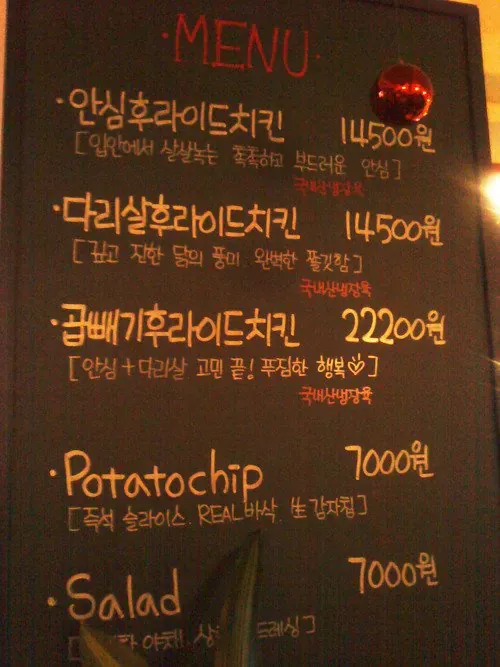 · MENU ·
· 안심후라이드치킨 14500원
[입안에서 살살녹는 촉촉하고 부드러운 안심]
국내산냉장육
· 다리살후라이드치킨 14500원
[깊고 진한 닭의 풍미 완벽한 쫄깃함]
국내산냉장육
· 곱빼기후라이드치킨 22200원
[안심+다리살 고민 끝! 푸짐한 행복♡]
국내산냉장육
· Potatochip 7000원
[즉석 슬라이스. REAL바삭. 生감자칩]
· Salad 7000원
야채. 드레싱]